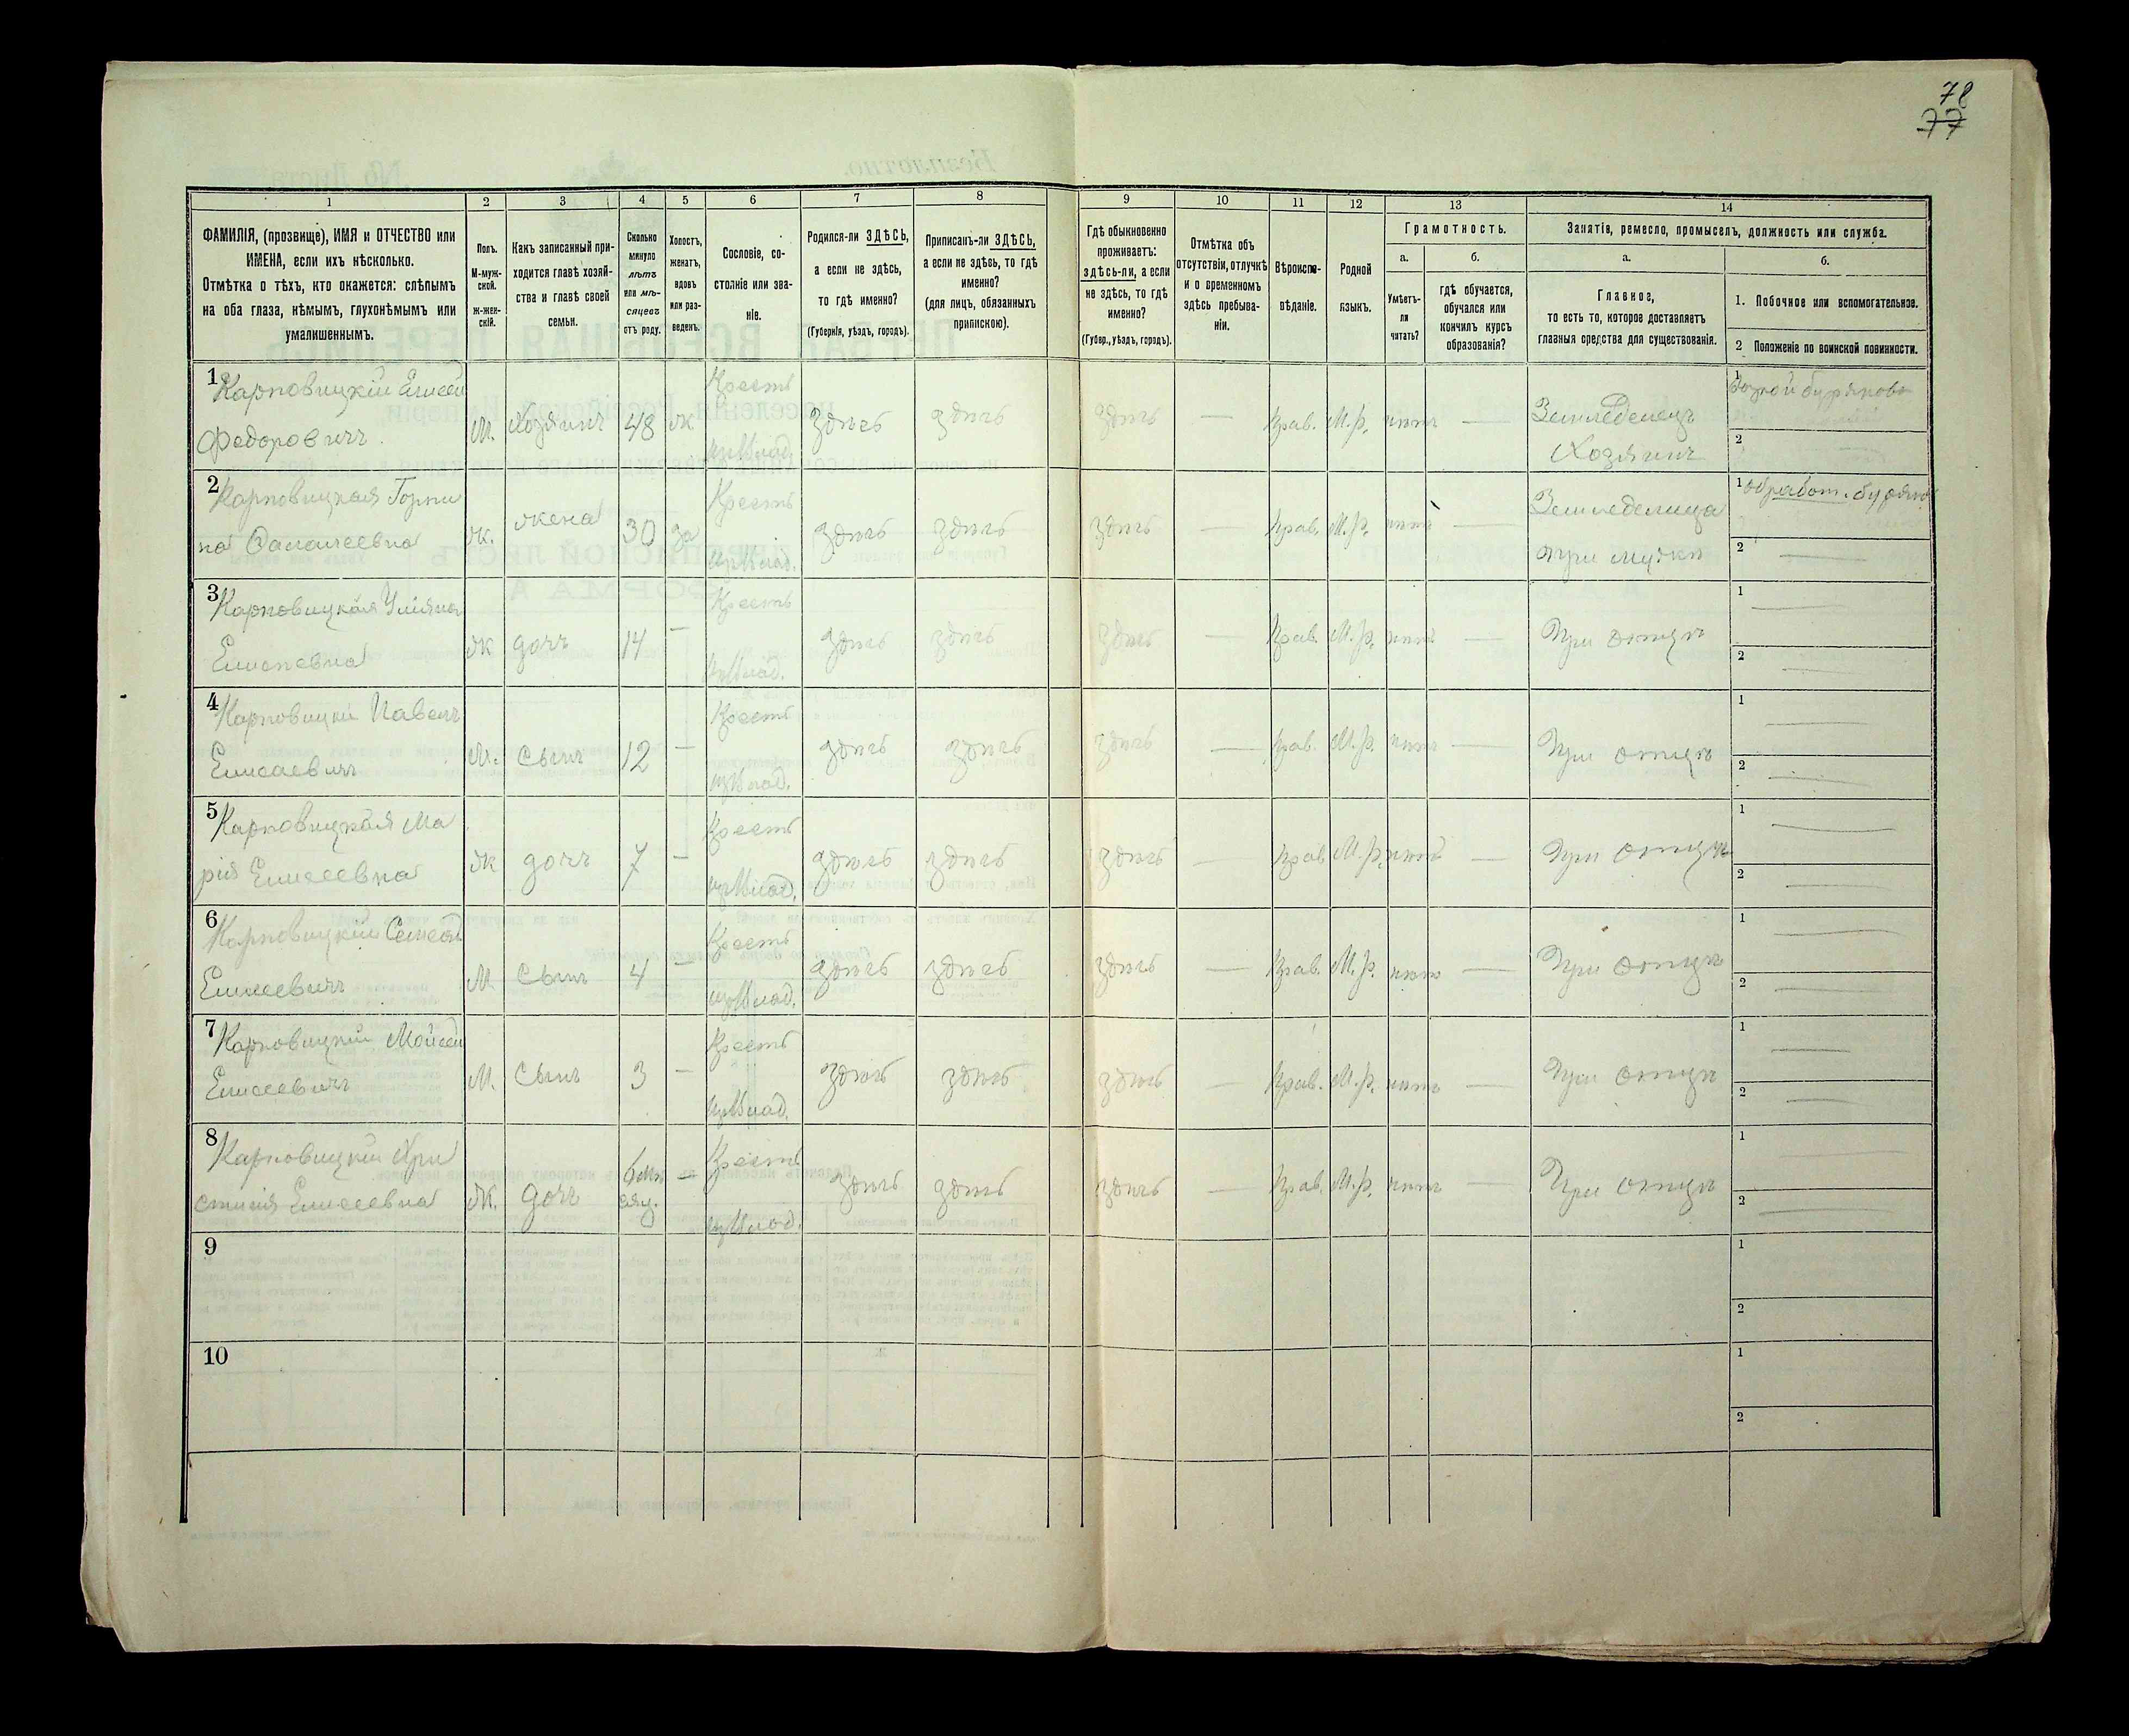 78
77
1 2 3 4 5 6 7 8 9 10 11 12 13 14
ФАМИЛІЯ, (прозвище), ИМЯ и ОТЧЕСТВО или
ИМЕНА, если ихъ нѣсколько.
Отмѣтка о тѣхъ, кто окажется: слѣпымъ
на оба глаза, нѣмымъ, глухонѣмымъ или
умалишеннымъ.
Полъ.
М-муж-
ской.
Ж-жен-
скій.
Какъ записанный при-
ходится главѣ хозяй-
ства и главѣ своей
семьи.
Сколько
минуло
лѣтъ
или мѣ-
сяцевъ
отъ роду.
Холостъ,
женатъ,
вдовъ
или раз-
веденъ.
Сословіе, со-
стояніе или зва-
ніе.
Родился-ли ЗДѢСЬ,
а если не здѣсь,
то гдѣ именно?
(Губернія, уѣздъ, городъ).
Приписанъ-ли ЗДѢСЬ,
а если не здѣсь, то гдѣ
именно?
(для лицъ, обязанныхъ
припискою).
Гдѣ обыкновенно
проживаетъ:
здѣсь-ли, а если
не здѣсь, то гдѣ
именно?
(Губер., уѣздъ, городъ).
Отмѣтка объ
отсутствіи, отлучкѣ
и о временномъ
здѣсь пребыва-
ніи.
Вѣроиспо-
вѣданіе.
Родной
языкъ.
Грамотность.
а.
Умѣетъ-
ли
читать?
б.
гдѣ обучается,
обучался или
кончилъ курсъ
образованія?
Занятіе, ремесло, промыселъ, должность или служба.
а.
Главное,
то есть то, которое доставляетъ
главныя средства для существованія.
б.
1. Побочное или вспомогательное.
2 Положеніе по воинской повинности.
1 Карповицкій Елисей Крест 1
Федоровичъ. М. Хозяинъ 48 ж. здѣсь здѣсь здѣсь — Прав. М. р. нѣтъ — Земледелецъ
из влад. Хозяинъ 2
2 Карповицкая Горпи Крест 1 обработ.
на М. жена 30 за здѣсь здѣсь здѣсь — Прав. М. р. нѣтъ — Земледелица
Ж. из влад. при мужѣ 2
3 Карповицкая Уліяна Крест 1
Елисеевна Ж дочь 14 — здѣсь здѣсь здѣсь — Прав. М. р. нѣтъ — При отцѣ
из влад. 2
4 Карповицкій Павелъ Крест 1
Елисаевичъ М. сынъ 12 — здѣсь здѣсь здѣсь — Прав. М. р. нѣтъ — При отцѣ
из влад. 2
5 Карповицкая Ма Крест 1
рія Елисеевна Ж дочь 7 — здѣсь здѣсь здѣсь — Прав М. р. нѣтъ — При отцѣ
из влад. 2
6 Карповицкій Крест 1
Елисеевичъ М. сынъ 4 — здѣсь здѣсь здѣсь — Прав. М. р. нѣтъ — При отцѣ
из влад. 2
7 Карповицкій Мойсей Крест 1
Елисеевичъ М. сынъ 3 — здѣсь здѣсь здѣсь — Прав. М. р. нѣтъ — При отцѣ
из влад. 2
8 Карповицкій Хри 6 мѣ Крест 1
стинія Елисеевна Ж. дочь сяц. — здѣсь здѣсь здѣсь — Прав. М. р. нѣтъ — При отцѣ
из влад. 2
9 1
2
10 1
2